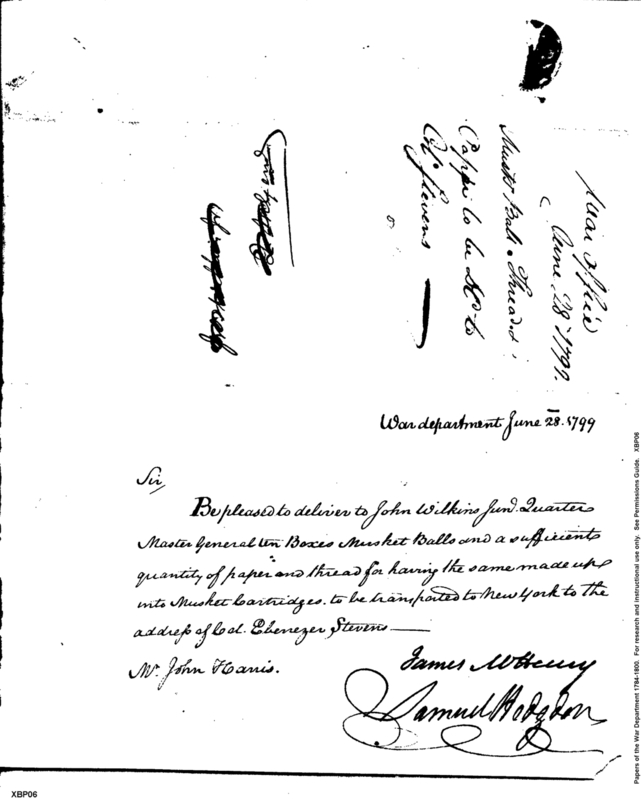 War office
June 28. 1799.
Musket Balls. Thread &
Paper to be Dd. to
Col. Stevens
War department June 28. 1799
Sir,
Be pleased to deliver to John Wilkins Junr. Quarter
Master General ten Boxes Musket Balls and a sufficient
quantity of paper and thread for having the same made up
into Musket Cartridges. to be transported to New York to the
address of Col. Ebenezer Stevens
Mr. John Harris.
James McHenry
Samuel Hodgdon
XBP06
Papers of the War Department 1784-1800. For research and instructional use only. See Permissions Guide. XBP06